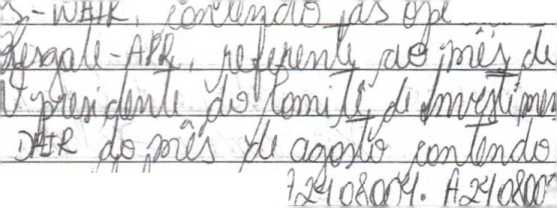 S-DAIR, contendo as ope
Resgate-APR, referente ao mês de
presidente do Comitê de Investimen
DAIR do mês de agosto contendo
A2408004. A240800